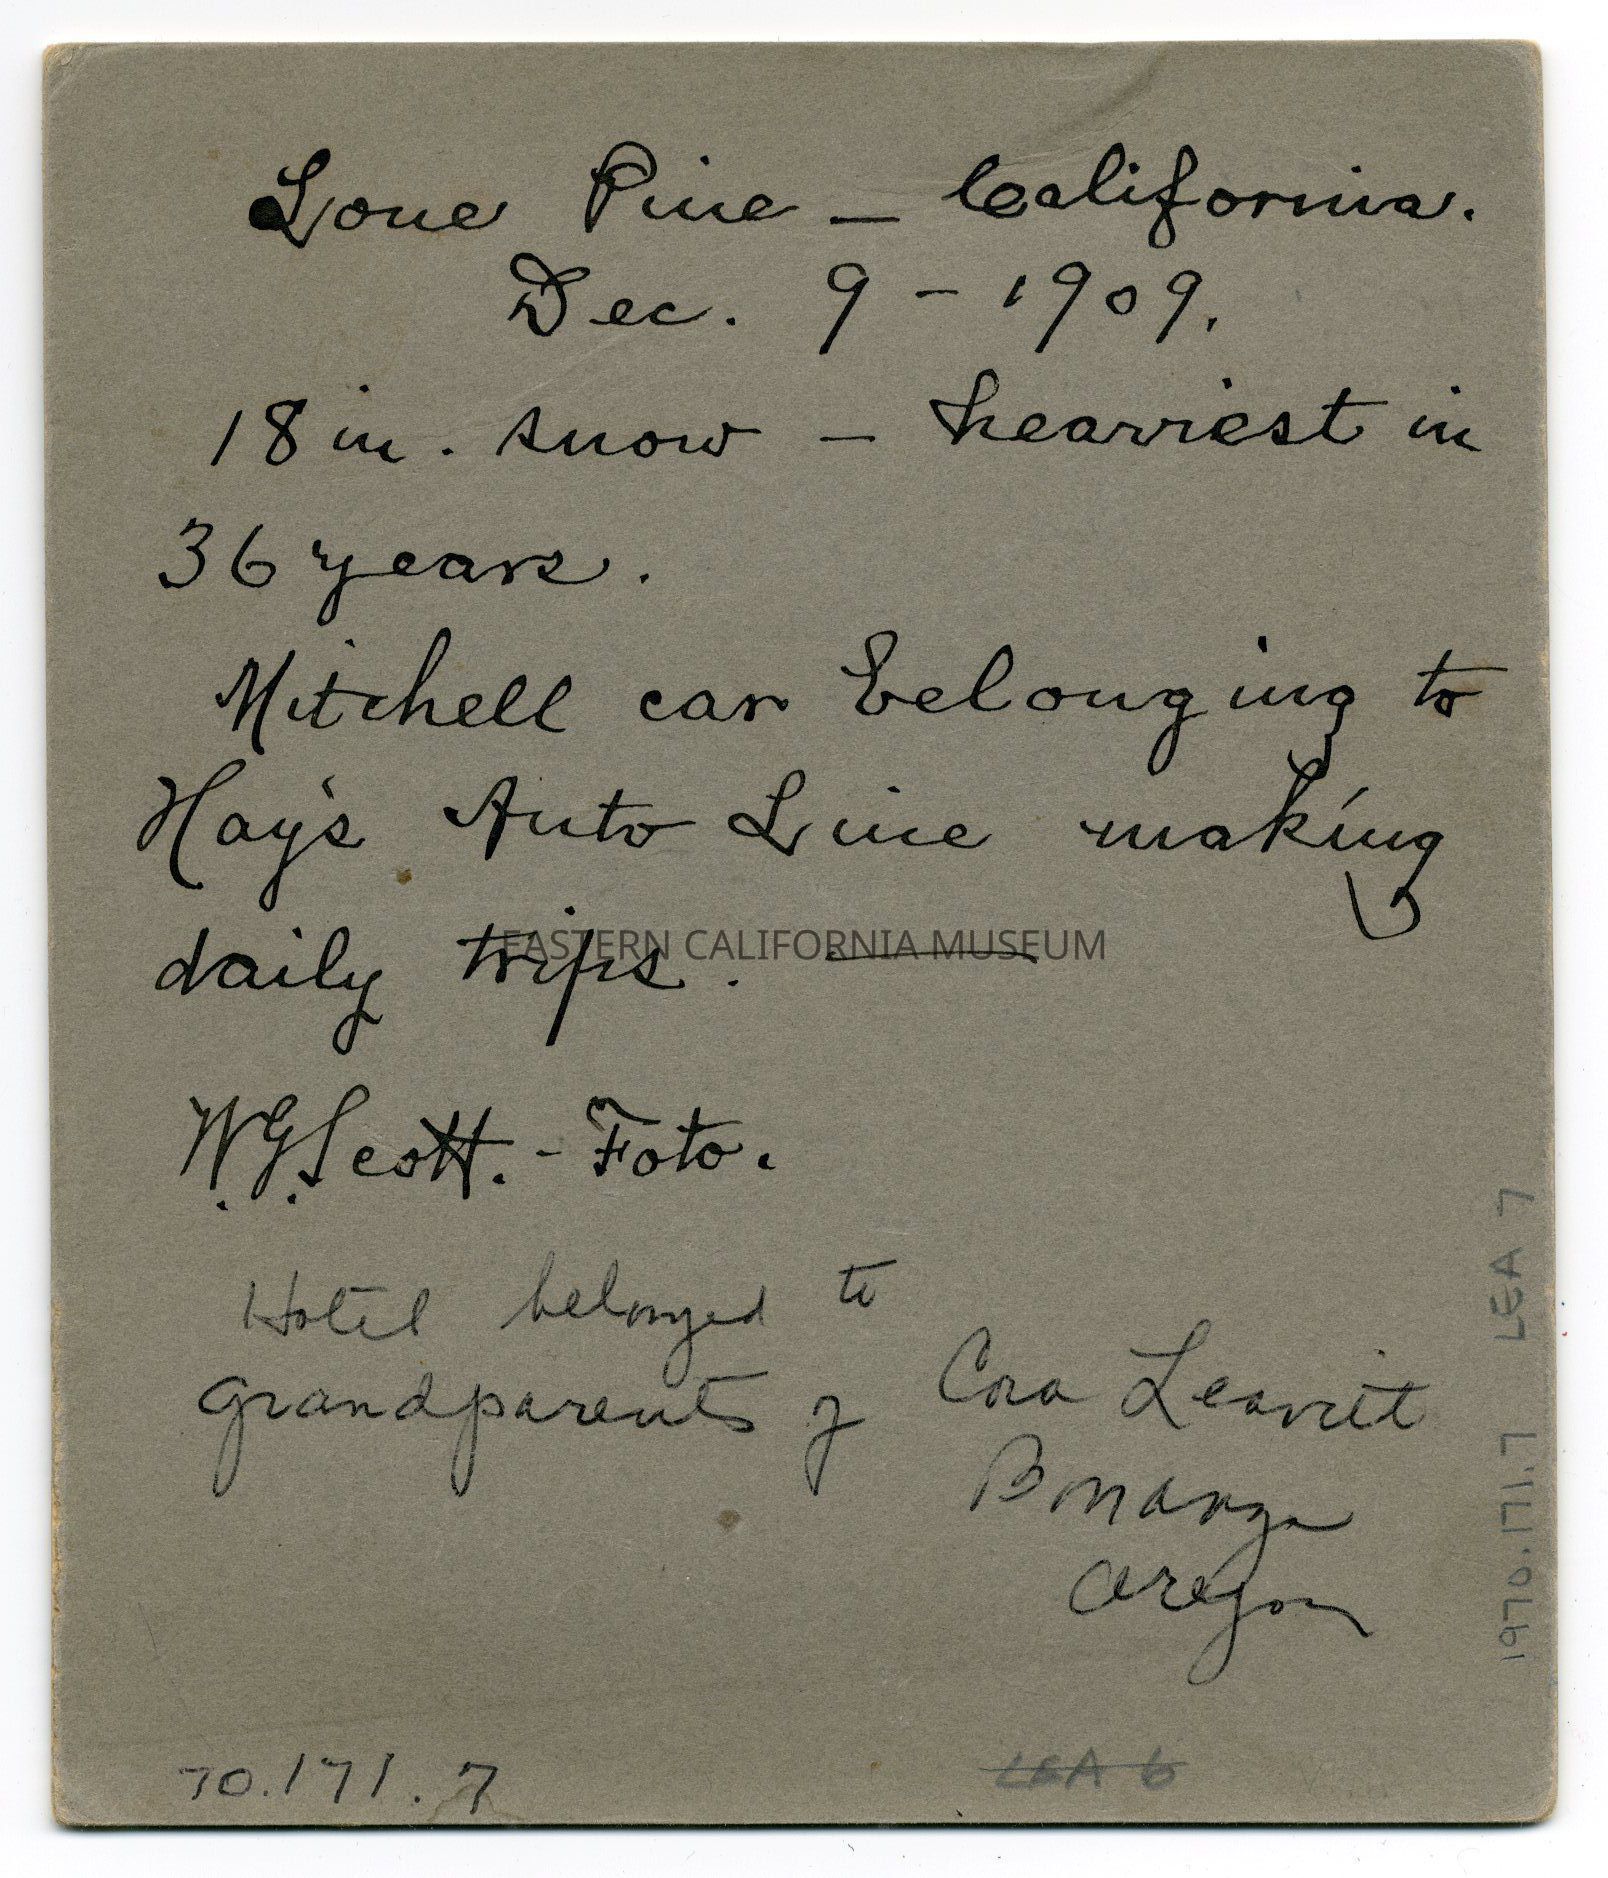 Lone Pine – California.
Dec. 9 – 1909.
18 in. snow – heaviest in
36 years.
Mitchell car belonging to
Hay's Auto Line making
daily trips.
EASTERN CALIFORNIA MUSEUM
W.G. Scott. - Foto.
Hotel belonged to
grandparents of Cora Leavitt
Bonanza
Oregon
70.171.7
LEA 6
1970.171.7 LEA 7